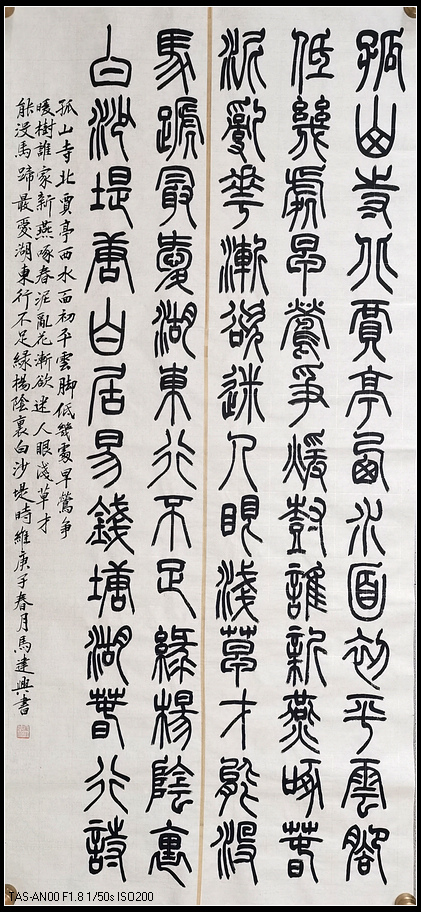 孤山寺北賈亭西水面初平雲腳
低幾處早鶯爭煖樹誰新燕啄春
泥亂華漸欲迷人眼淺草才能沒
馬蹏最愛湖東行不足綠楊陰裏
白沙堤唐白居易錢塘湖春行詩
孤山寺北賈亭西水面初平雲脚低幾處早鶯爭
暖樹誰家新燕啄春泥亂花漸欲迷人眼淺草才
能沒馬蹄最愛湖東行不足綠楊陰裏白沙堤時維庚子春月馬興書
TAS-AN00 F1.8 1/50s ISO200